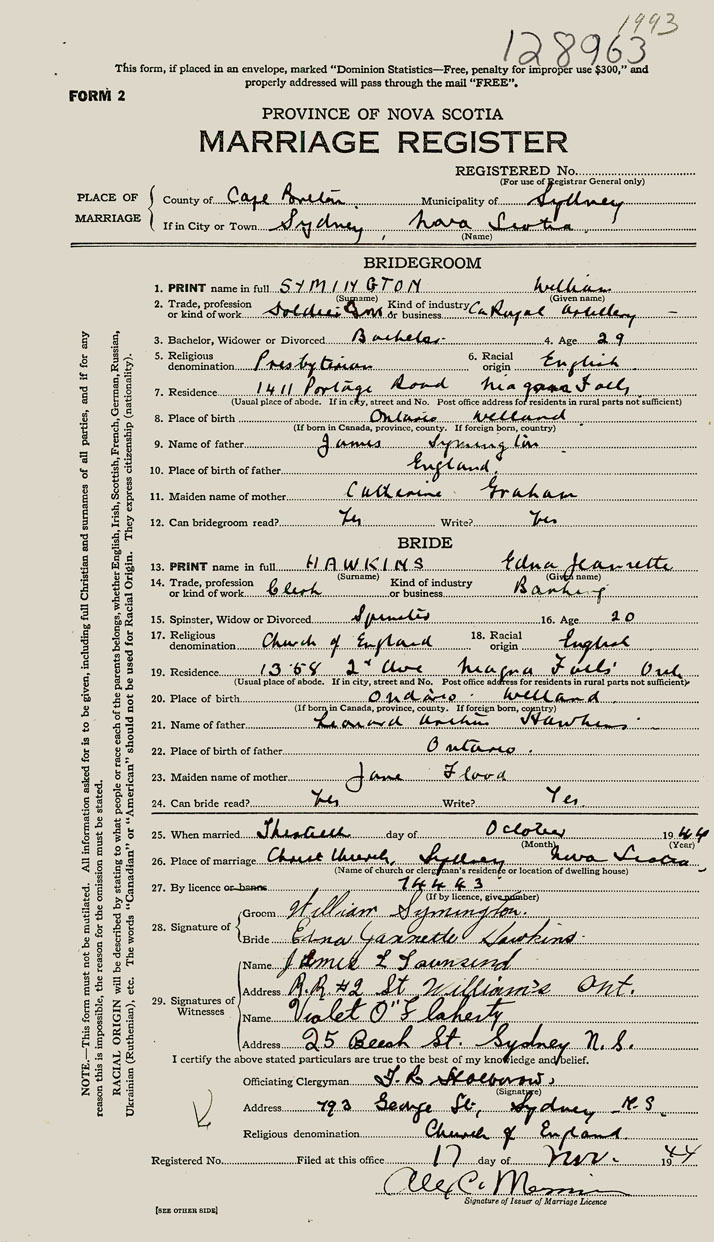 1993
128963
This form, if placed in an envelope, marked "Dominion Statistics—Free, penalty for improper use $300," and
properly addressed will pass through the mail "FREE".
FORM 2
PROVINCE OF NOVA SCOTIA
MARRIAGE REGISTER
REGISTERED No.
(For use of Registrar General only)
PLACE OF MARRIAGE
County of Cape Breton Municipality of Sydney
If in City or Town Sydney, Nova Scotia
(Name)
BRIDEGROOM
1. PRINT name in full SYMINGTON William
(Surname) (Given name)
2. Trade, profession or kind of work Soldier Kind of industry or business Royal Artillery
3. Bachelor, Widower or Divorced Bachelor 4. Age 29
5. Religious denomination Presbyterian 6. Racial origin English
7. Residence 1411 Portage Road Niagara Falls
(Usual place of abode. If in city, street and No. Post office address for residents in rural parts not sufficient)
8. Place of birth Ontario Welland
(If born in Canada, province, county. If foreign born, country)
9. Name of father James Symington
10. Place of birth of father England
11. Maiden name of mother Catherine Graham
12. Can bridegroom read? Yes Write? Yes
BRIDE
13. PRINT name in full HAWKINS Edna Jeannette
(Surname) (Given name)
14. Trade, profession or kind of work Clerk Kind of industry or business Banking
15. Spinster, Widow or Divorced Spinster 16. Age 20
17. Religious denomination Church of England 18. Racial origin English
19. Residence 1368 2nd Ave Niagra Falls Ont
(Usual place of abode. If in city, street and No. Post office address for residents in rural parts not sufficient)
20. Place of birth Ontario Welland
(If born in Canada, province, county. If foreign born, country)
21. Name of father Leonard Arthur Hawkins
22. Place of birth of father Ontario.
23. Maiden name of mother Jane Flood
24. Can bride read? Yes Write? Yes
25. When married Thirtieth day of October 1944
(Month) (Year)
26. Place of marriage Christ Church, Sydney Nova Scotia
(Name of church or clergyman's residence or location of dwelling house)
27. By licence or banns 74443
(If by licence, give number)
28. Signature of
Groom William Symington.
Bride Edna Jannette Hawkins
29. Signatures of Witnesses
Name James L Townsend
Address R.R #2 St William's Ont.
Name Violet O'Flaherty
Address 25 Beech St. Sydney N.S.
I certify the above stated particulars are true to the best of my knowledge and belief.
Officiating Clergyman
(Signature)
Address 793 George St, Sydney N.S.
Religious denomination Church of England
Registered No. Filed at this office 17 day of Nov. 1944
Signature of Issuer of Marriage Licence
[SEE OTHER SIDE]
NOTE.—This form must not be mutilated. All information asked for is to be given, including full Christian and surnames of all parties, and if for any
reason this is impossible, the reason for the omission must be stated.
RACIAL ORIGIN will be described by stating to what people or race each of the parents belongs, whether English, Irish, Scottish, French, German, Russian,
Ukrainian (Ruthenian), etc. The words "Canadian" or "American" should not be used for Racial Origin. They express citizenship (nationality).